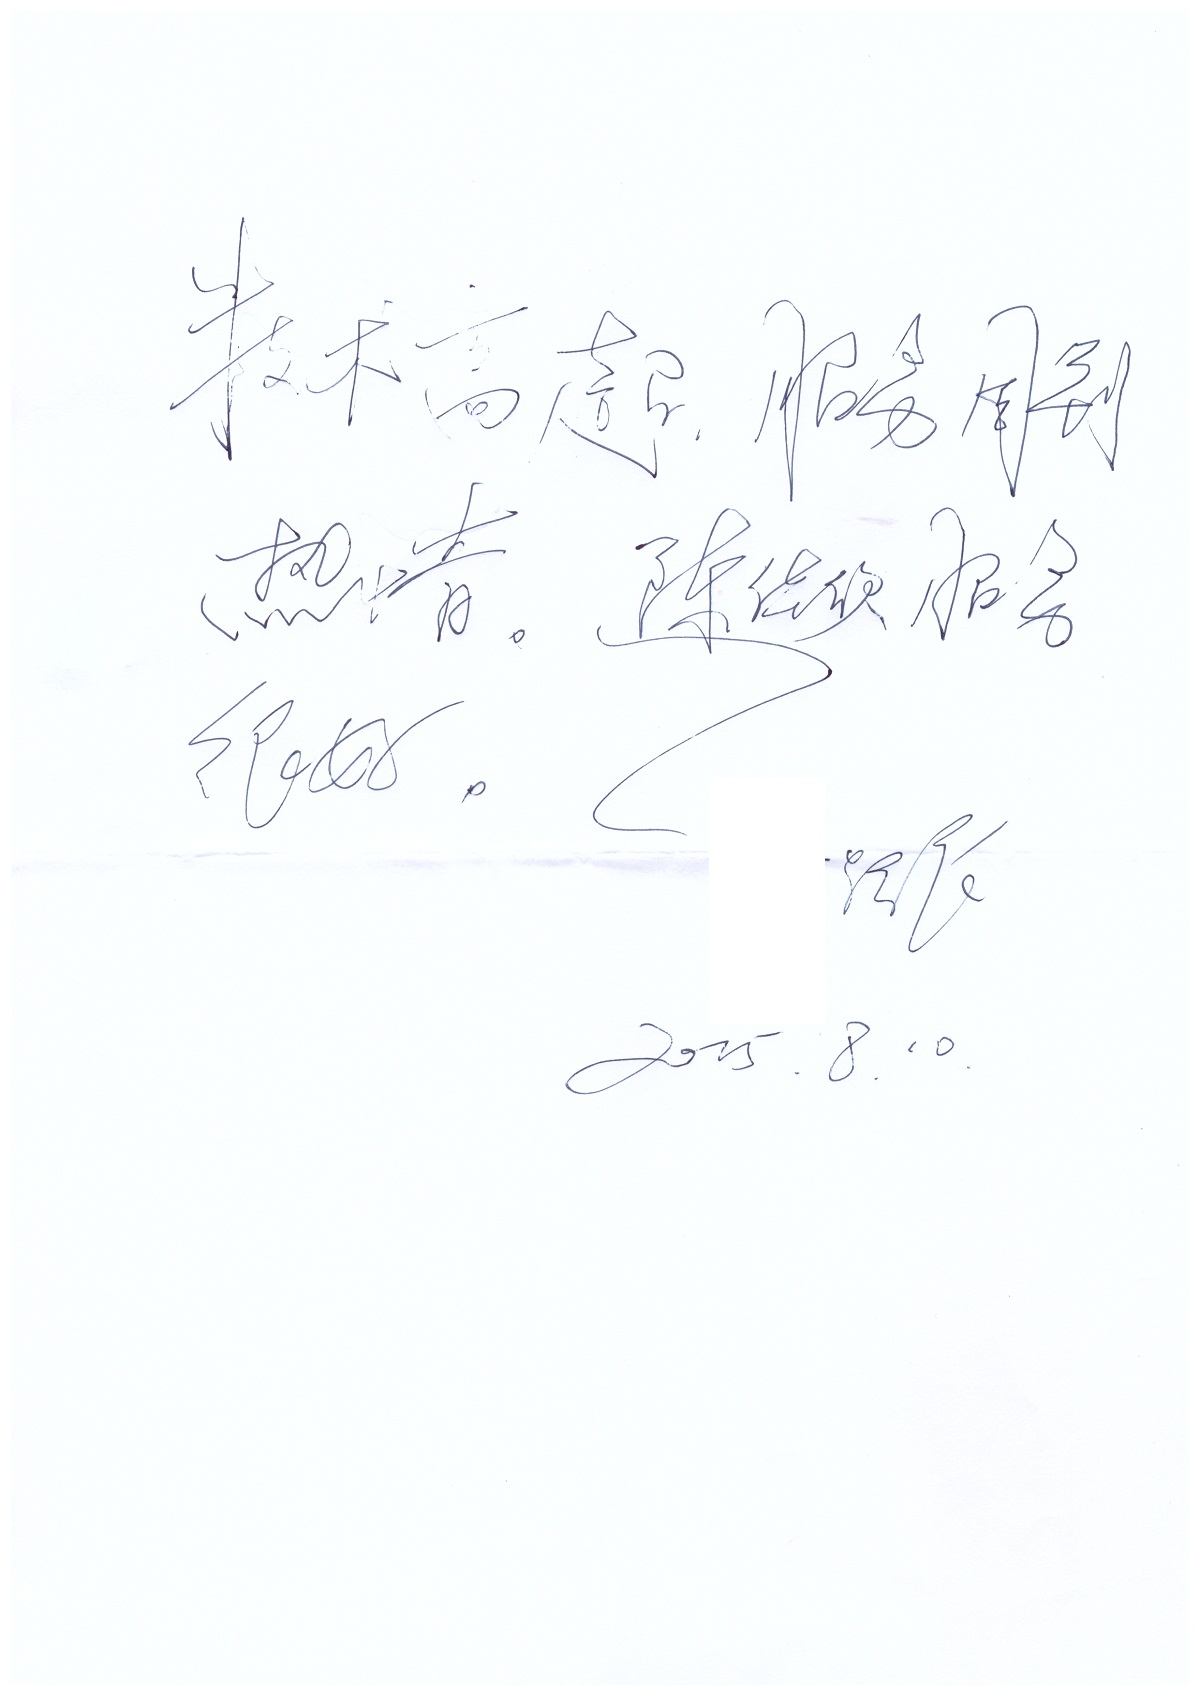 技术高超、服务周到
热情。陈佳欣服务
很好。
2025.8.10.